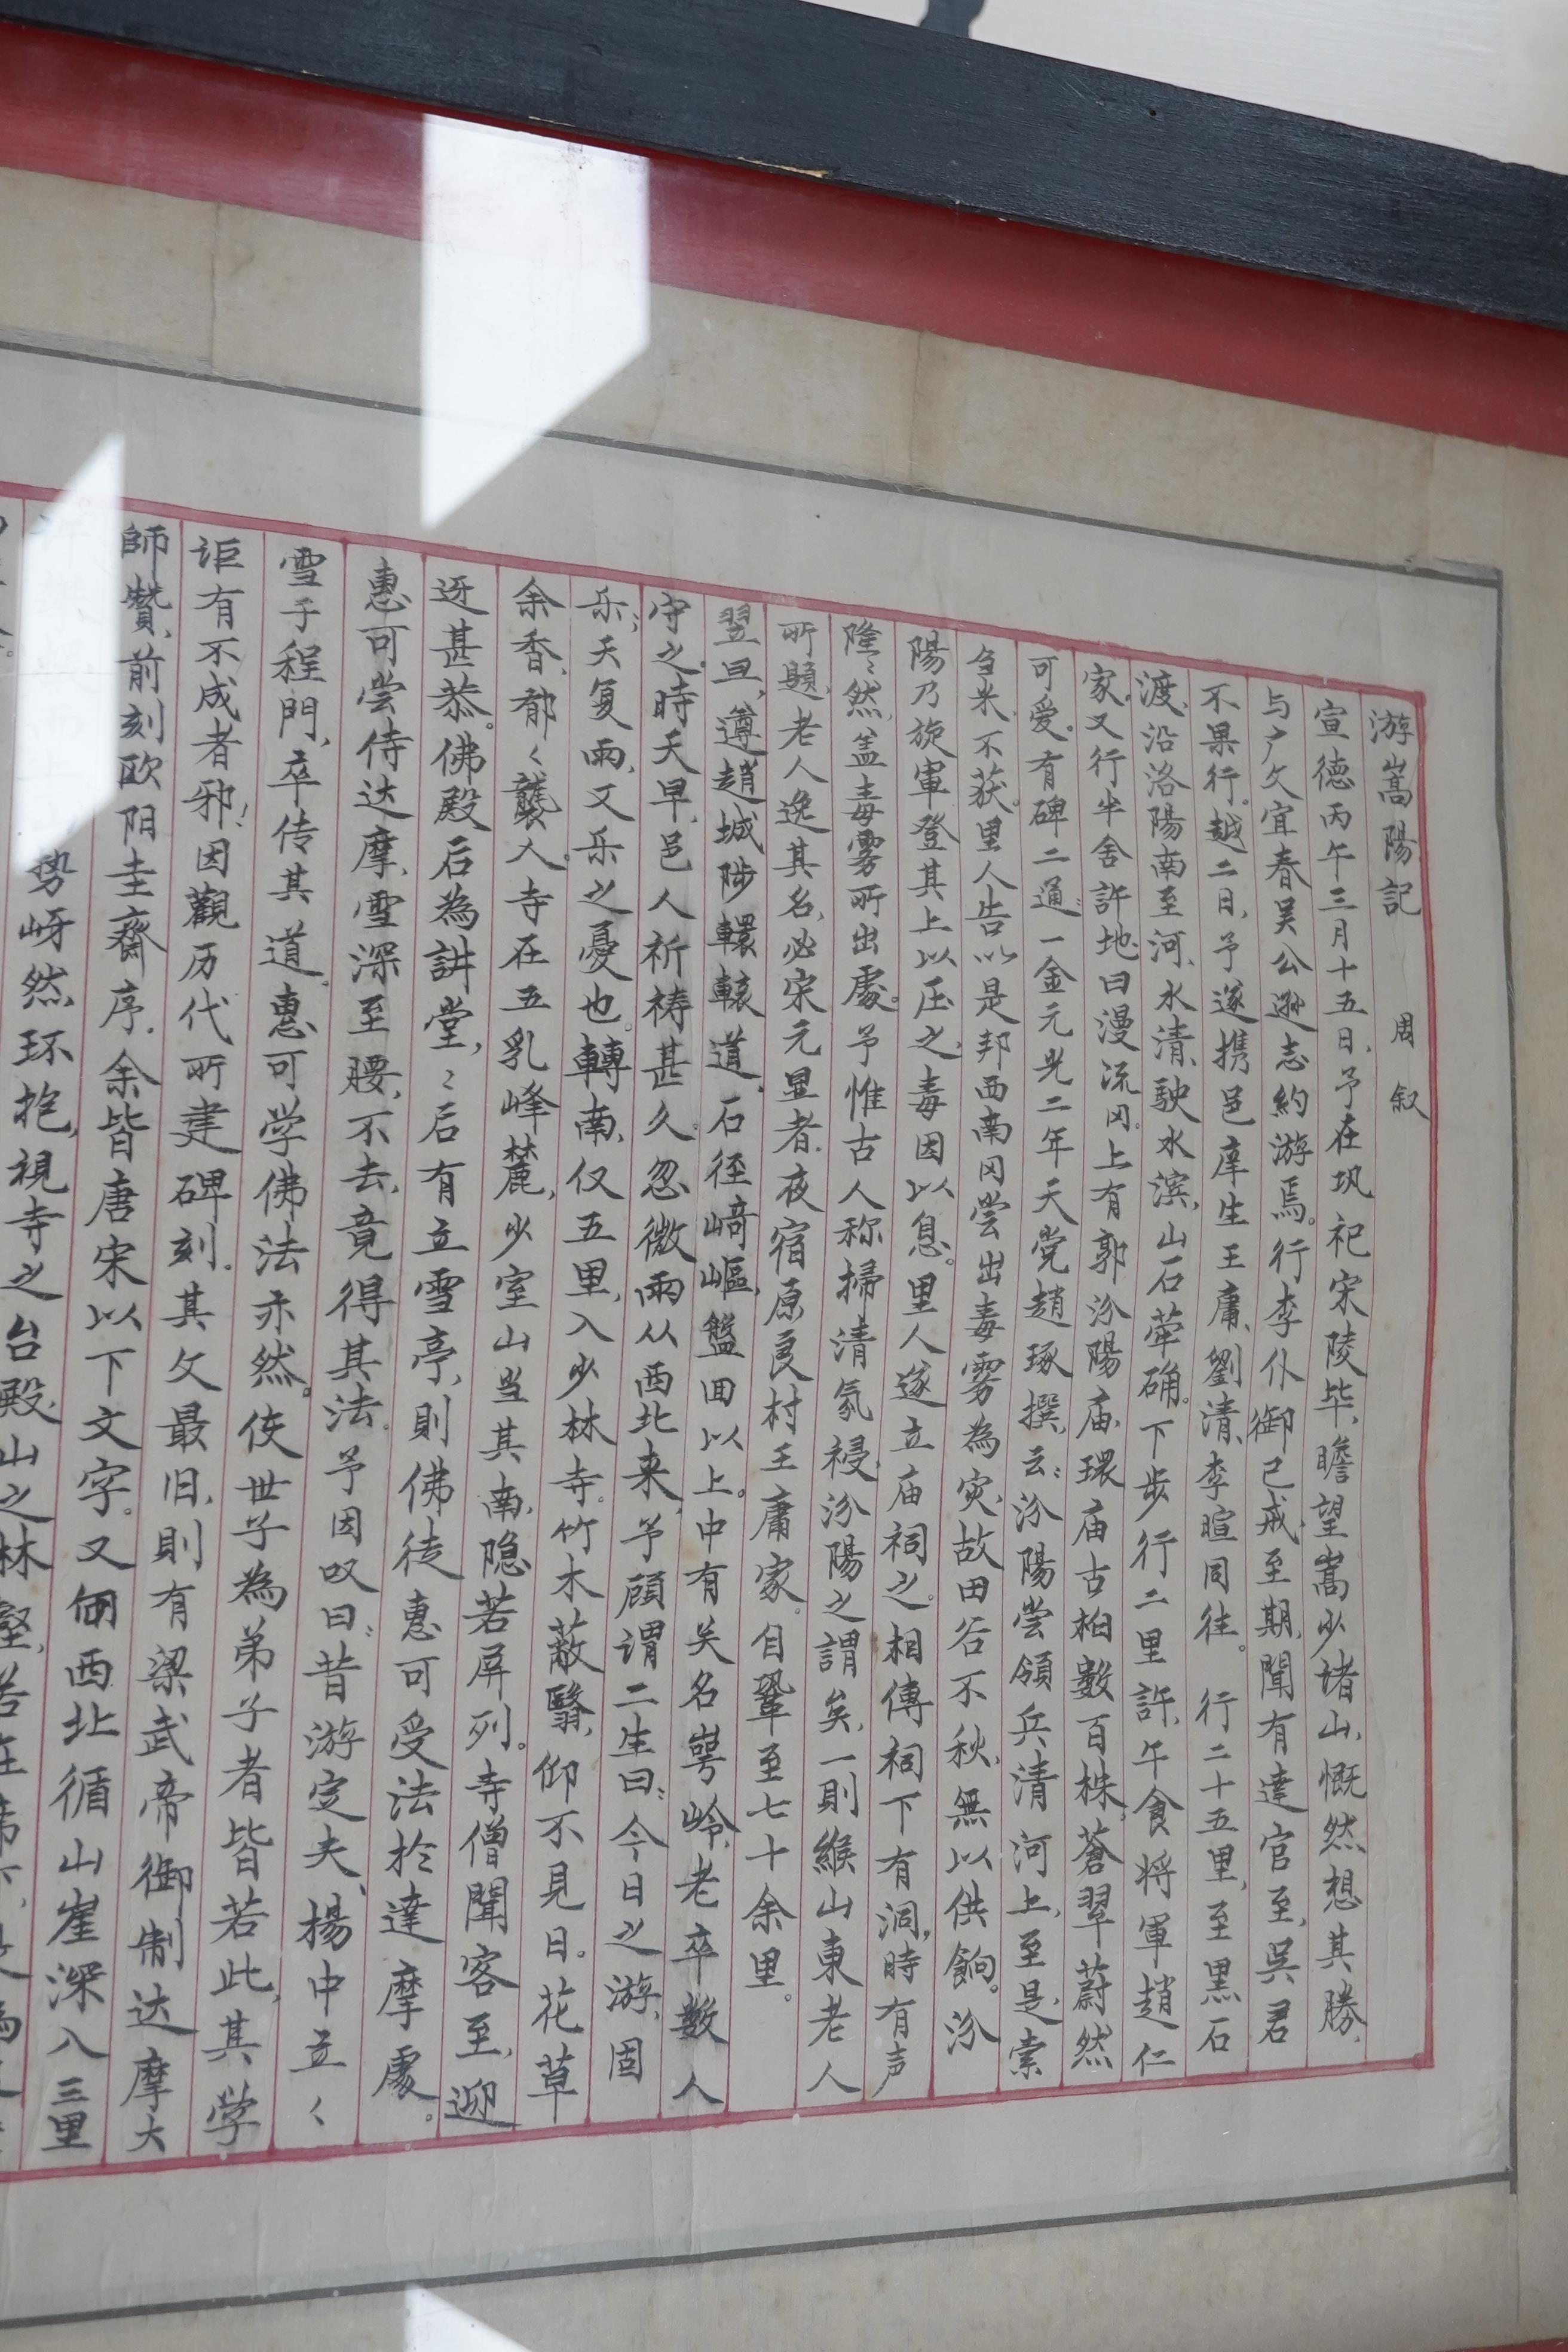 游嵩陽記 周叙
宣德丙午三月十五日,予在巩祀宋陵毕,瞻望嵩少堵山,慨然想其勝,
与广文宜春吴公逊志約游焉。行李仆御已戒至期,聞有達官至,吳君
不果行。越二日,予遂携邑庠生王庸、劉清、李暄同往。行二十五里,至黑石
渡,沿洛陽南至河,水清駛,水滨,山石荦确。下步行二里許,午食将軍趙仁
家。又行半舍許,地曰漫流冈。上有郭汾陽庙,環庙古柏數百株,蒼翠蔚然
可爱。有碑二通:一金元光二年天党趙琢撰,云:汾陽尝領兵清河上,至是,索
刍米,不获。里人告以是邦西南冈尝出毒雾為灾,故田谷不秋,無以供餉。汾
陽乃旋軍登其上以压之,毒因以息。里人遂立庙祠之。相傳祠下有洞,時有声
隆〻然,盖毒雾所出處。予惟古人称掃清氛祲,汾陽之謂矣,一則緱山東老人
所題,老人逸其名,必宋元显者。夜宿原良村王庸家。自鞏至七十余里。
翌旦,遵趙城陟轘轅道,石径崎嶇,盤回以上。中有关名崿岭,老卒數人
守之。時天旱,邑人祈祷甚久。忽微雨从西北来,予顧謂二生曰:今日之游,固
乐;天复雨,又乐之憂也。轉南,仅五里,入少林寺。竹木蔽翳,仰不見日。花草
余香,郁〻襲人。寺在五乳峰麓,少室山当其南,隐若屏列。寺僧聞客至,迎
迓甚恭。佛殿后為讲堂,〻后有立雪亭,則佛徒惠可受法於達摩處。
惠可尝侍达摩,雪深至腰,不去,竟得其法。予因叹曰:昔游定夫、楊中立〻
雪于程門,卒传其道。惠可学佛法亦然。使世子為弟子者皆若此,其学
讵有不成者邪!因觀历代所建碑刻。其文最旧,則有梁武帝御制达摩大
師贊,前刻欧阳圭齋序。余皆唐宋以下文字。又西北循山崖深入三里
势岈然,环抱,視寺之台殿,山之林壑,若在